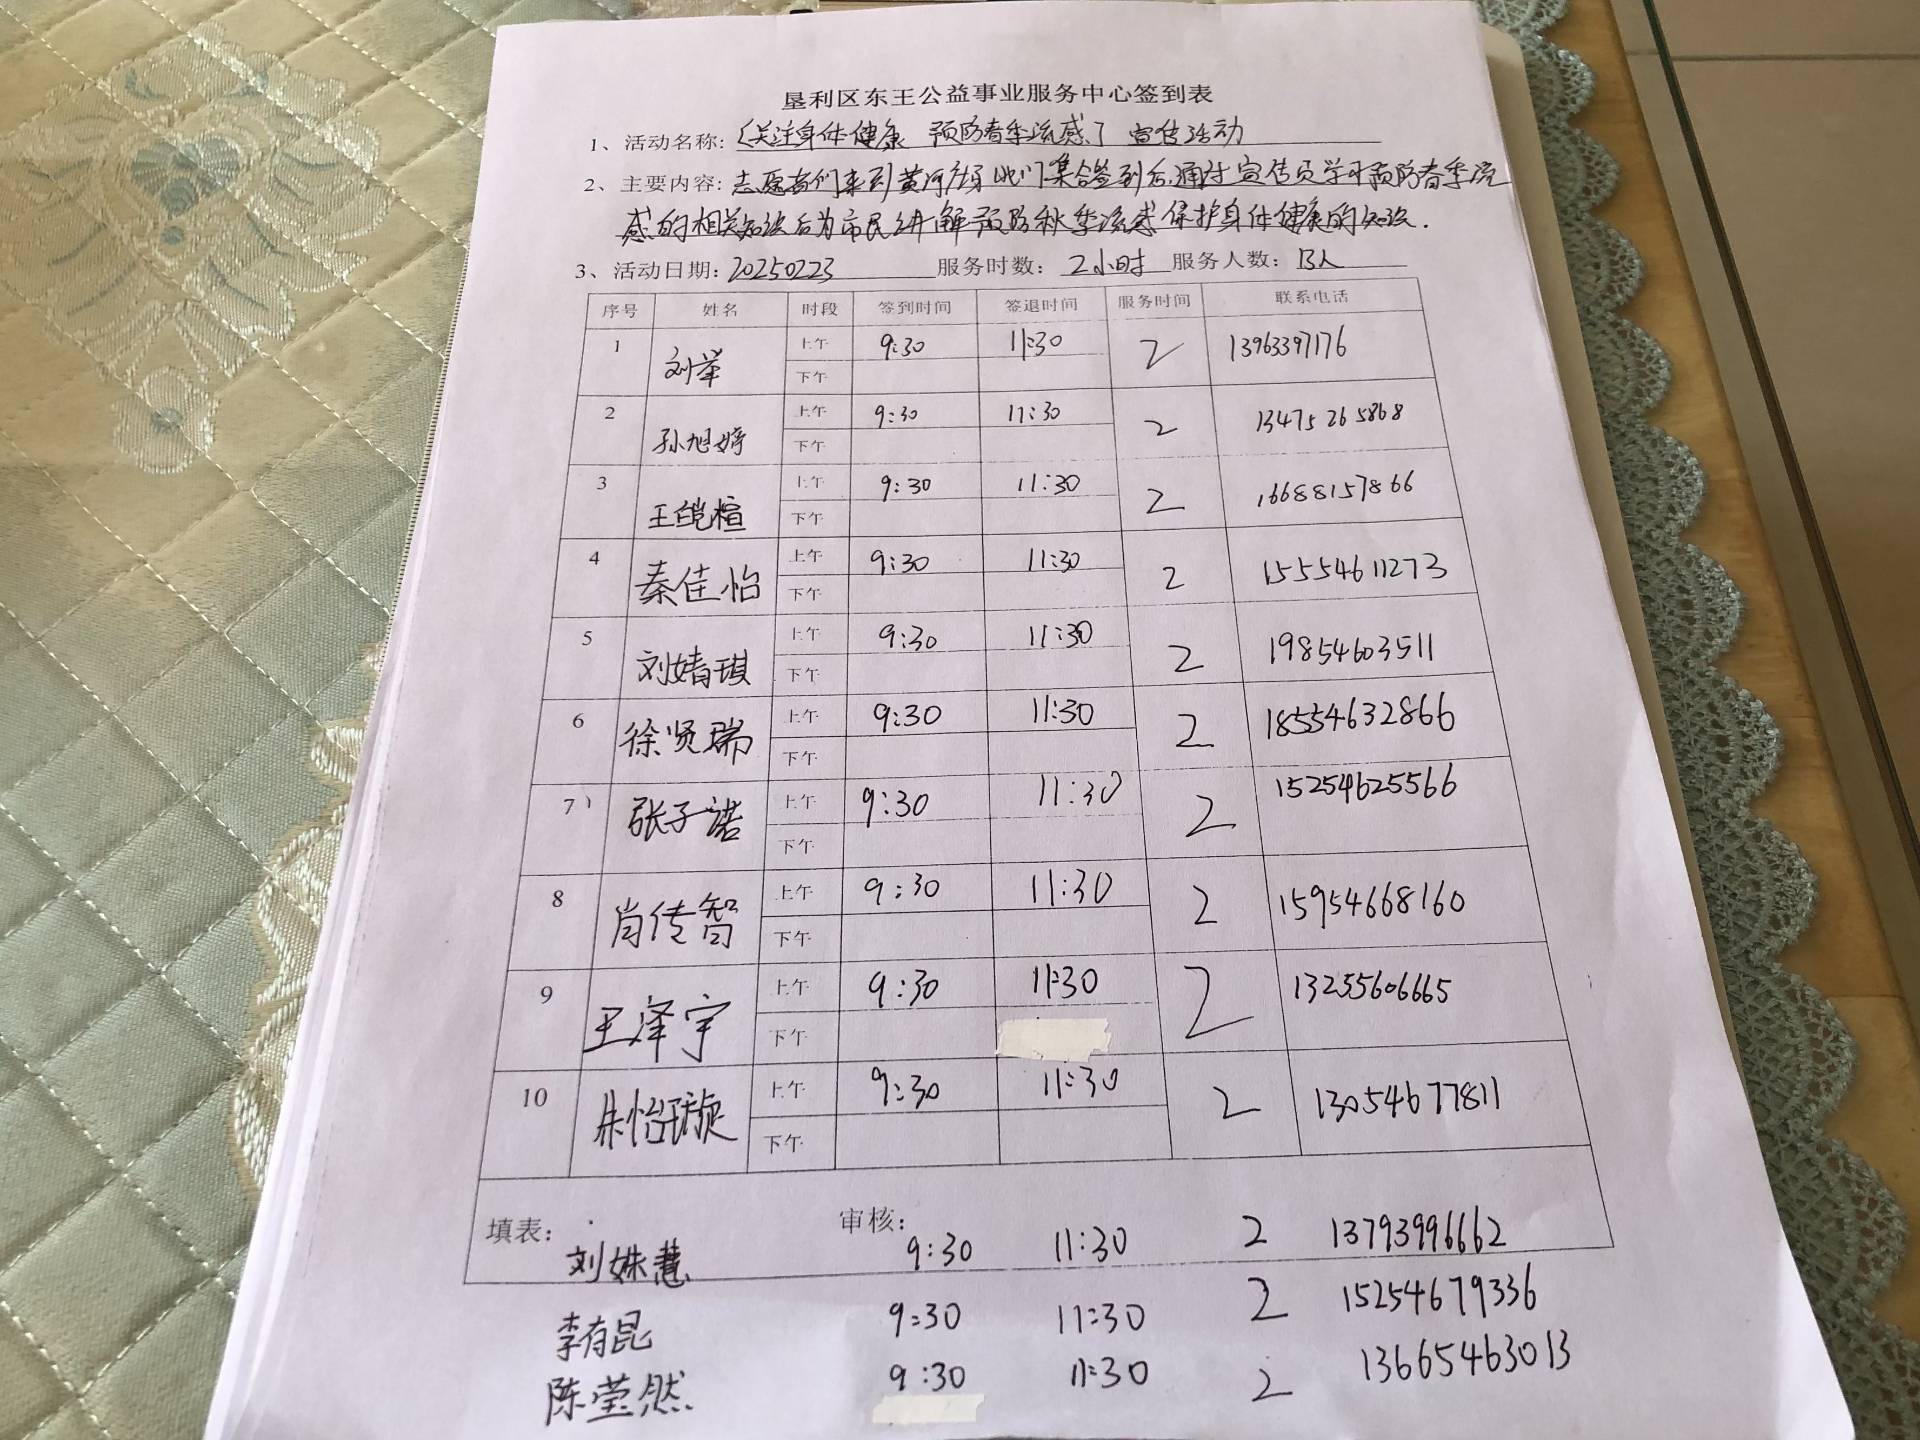 垦利区东王公益事业服务中心签到表
1、活动名称: 《关注身体健康 预防春季流感》宣传活动
2、主要内容: 志愿者们来到黄河广场北门集合签到后,通过宣传员学习预防春季流
感的相关知识后为市民讲解预防秋季流感保护身体健康的知识.
3、活动日期: 20250223 服务时数: 2小时 服务人数: 13人
序号 姓名 时段 签到时间 签退时间 服务时间 联系电话
1 刘举 上午 9:30 11:30 2 13963397176
下午
2 孙旭婷 上午 9:30 11:30 2 13475265868
下午
3 王皑楦 上午 9:30 11:30 2 16688157866
下午
4 秦佳怡 上午 9:30 11:30 2 15554611273
下午
5 刘婧琪 上午 9:30 11:30 2 19854603511
下午
6 徐贤瑞 上午 9:30 11:30 2 18554632866
下午
7 张子诺 上午 9:30 11:30 2 15254625566
下午
8 肖传智 上午 9:30 11:30 2 15954668160
下午
9 王泽宇 上午 9:30 11:30 2 13255606665
下午
10 朱怡璇 上午 9:30 11:30 2 13054677811
下午
填表: 审核:
刘姝慧 9:30 11:30 2 13793996662
李有昆 9:30 11:30 2 15254679336
陈莹然 9:30 11:30 2 13665463013